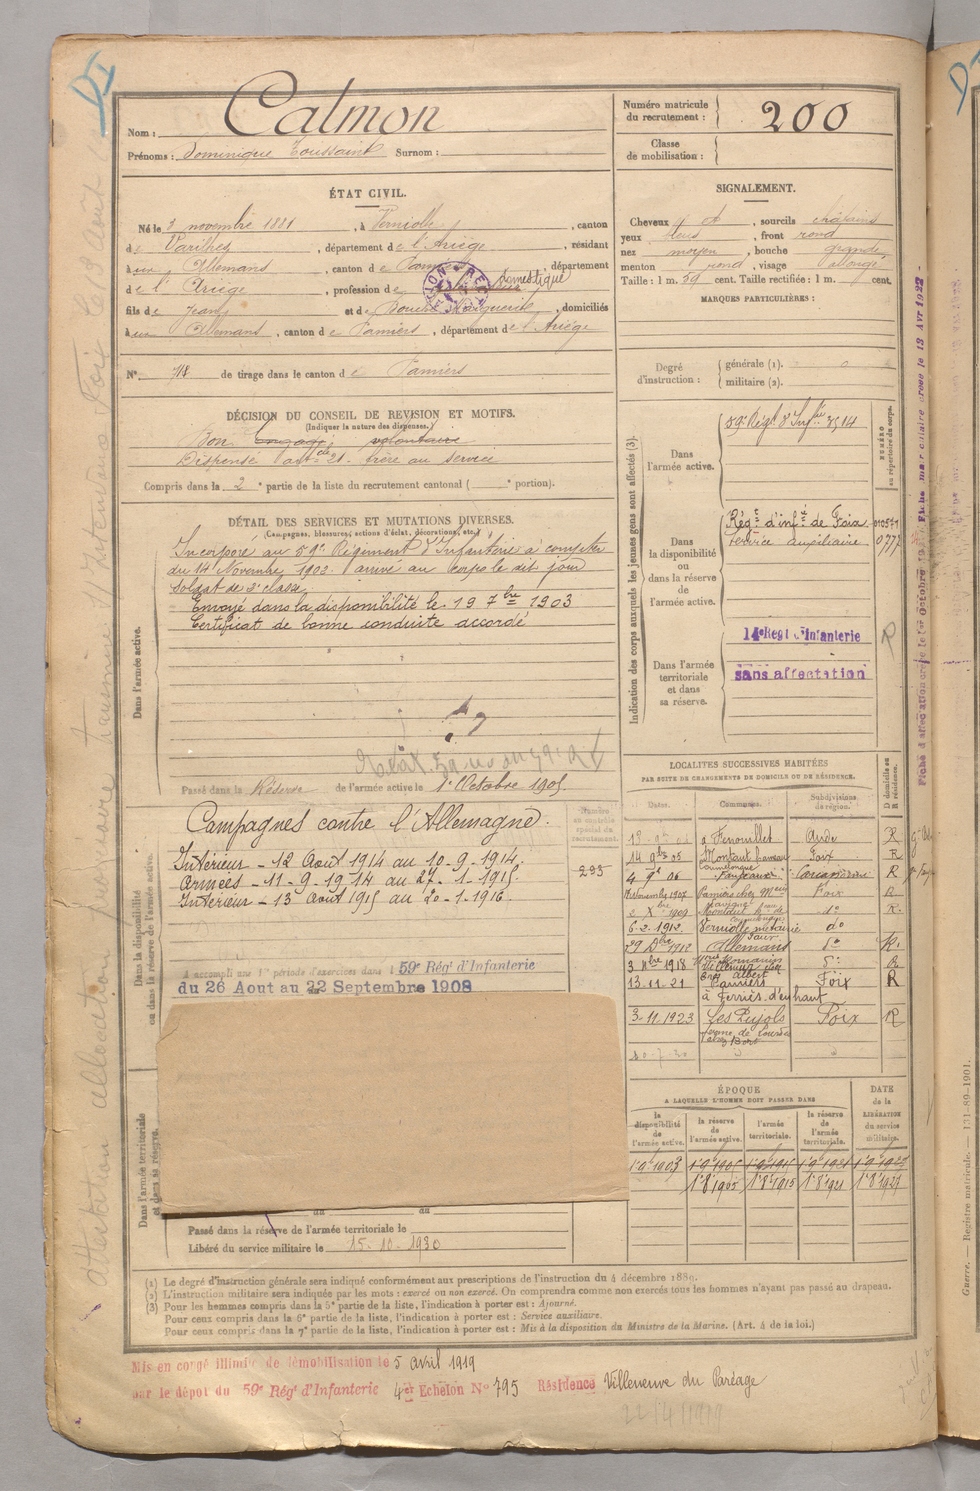 Nom : Calmon
Prénoms : Dominique Toussaint Surnom :
Numéro matricule du recrutement : 200
Classe de mobilisation :
ÉTAT CIVIL.
Né le 3 novembre 1881, à Verniolle, canton
de Varilhes, département de l'Ariège, résidant
à Allemans, canton de Pamiers, département
de l'Ariège, profession de domestique
fils de Jean et de Marguerite, domiciliés
à Allemans, canton de Pamiers, département de l'Ariège
N° 718 de tirage dans le canton de Pamiers
DÉCISION DU CONSEIL DE REVISION ET MOTIFS.
(Indiquer la nature des dispenses.)
Bon Engagé volontaire
Dispensé art. 21. frère au service
Compris dans la 2e partie de la liste du recrutement cantonal ( e portion).
SIGNALEMENT.
Cheveux et , sourcils châtains
yeux bleus, front rond
nez moyen, bouche grande
menton rond, visage allongé
Taille : 1 m. 59 cent. Taille rectifiée : 1 m. cent.
MARQUES PARTICULIÈRES :
Degré d'instruction : générale (1). 0
militaire (2).
DÉTAIL DES SERVICES ET MUTATIONS DIVERSES.
(Campagnes, blessures, actions d'éclat, décorations, etc.)
Dans l'armée active.
Incorporé au 59e Régiment d'Infanterie à compter
du 14 Novembre 1902. arrivé au corps le dit jour
Soldat de 2e classe.
Envoyé dans la disponibilité le 19 7bre 1903
Certificat de bonne conduite accordé
Passé dans la Réserve de l'armée active le 1er Octobre 1905
Dans la disponibilité ou dans la réserve de l'armée active.
Campagnes contre l'Allemagne.
Intérieur - 12 Août 1914 au 10-9-1914.
Armées - 11-9-1914 au 27-1-1915.
Intérieur - 13 Août 1915 au 20-1-1916.
A accompli une 1re période d'exercices dans l 59e Régt d'Infanterie
du 26 Aout au 22 Septembre 1908
Dans l'armée territoriale et dans sa réserve.
du au
Passé dans la réserve de l'armée territoriale le
Libéré du service militaire le 15-10-1930
Numéro au contrôle spécial du recrutement.
295
Indication des corps auxquels les jeunes gens sont affectés (3).
NUMÉRO au répertoire du corps.
Dans l'armée active.
59e Régt d'Infie 3514
Dans la disponibilité ou dans la réserve de l'armée active.
Régt d'infie de Foix 010577
Service auxiliaire 0777
Dans l'armée territoriale et dans sa réserve.
14e Régt d'Infanterie
sans affectation
LOCALITÉS SUCCESSIVES HABITÉES
PAR SUITE DE CHANGEMENTS DE DOMICILE OU DE RÉSIDENCE.
Dates. Communes. Subdivisions de région. D domicile ou R résidence.
à Fenouillet Aude R
14 9bre 05 Montaut Foix R
4 9bre 06 Fanjeaux Carcassonne R
Novembre 1907 Pamiers chez Foix R
1909 do R.
6-2-1912 Verniolle métairie do
29 Dbre 1912 Allemans do R.
3 Nbre 1918 Villeneuve do R
13-11-21 Pamiers Foix R
à Ferriès d'en haut
3-11-1923 Les Pujols Foix R
ÉPOQUE
A LAQUELLE L'HOMME DOIT PASSER DANS
la disponibilité de l'armée active. la réserve de l'armée active. l'armée territoriale. la réserve de l'armée territoriale. DATE de la LIBÉRATION du service militaire.
1-9-1903 1-9-1905 1-9-1915 1-9-1921 1-9-1927
1-8-1905 1-8-1915 1-8-1921 1-8-1927
(1) Le degré d'instruction générale sera indiqué conformément aux prescriptions de l'instruction du 4 décembre 1889.
(2) L'instruction militaire sera indiquée par les mots : exercé ou non exercé. On comprendra comme non exercés tous les hommes n'ayant pas passé au drapeau.
(3) Pour les hommes compris dans la 5e partie de la liste, l'indication à porter est : Ajourné.
Pour ceux compris dans la 6e partie de la liste, l'indication à porter est : Service auxiliaire.
Pour ceux compris dans la 7e partie de la liste, l'indication à porter est : Mis à la disposition du Ministre de la Marine. (Art. 4 de la loi.)
Mis en congé illimité de démobilisation le 5 avril 1919
par le dépôt du 59e Régt d'Infanterie 4er Echelon No 795 Résidence Villeneuve du Paréage
22/4/1919
Guerre. — Registre matricule. — 131-89-1901.